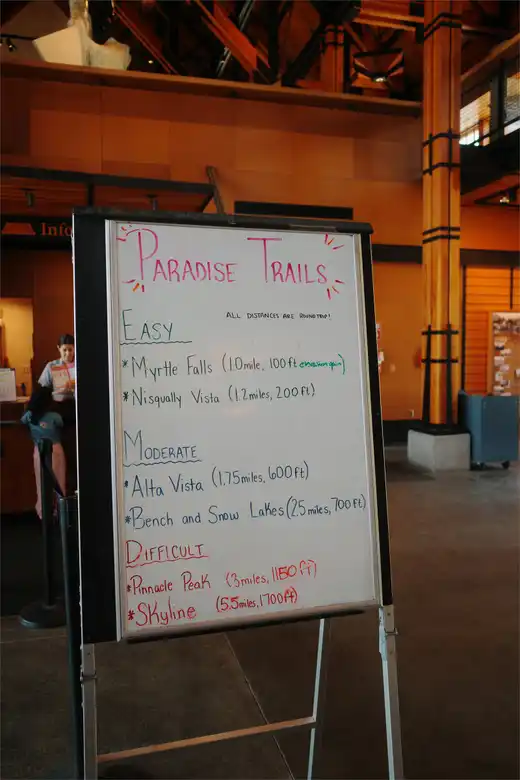 Info
PARADISE TRAILS
ALL DISTANCES ARE ROUNDTRIP!
EASY
*Myrtle Falls (1.0mile, 100ft elevation gain)
*Nisqually Vista (1.2miles, 200ft)
MODERATE
*Alta Vista (1.75miles, 600ft)
*Bench and Snow Lakes (2.5miles, 700ft)
DIFFICULT
*Pinnacle Peak (3miles, 1150ft)
*Skyline (5.5miles, 1700ft)